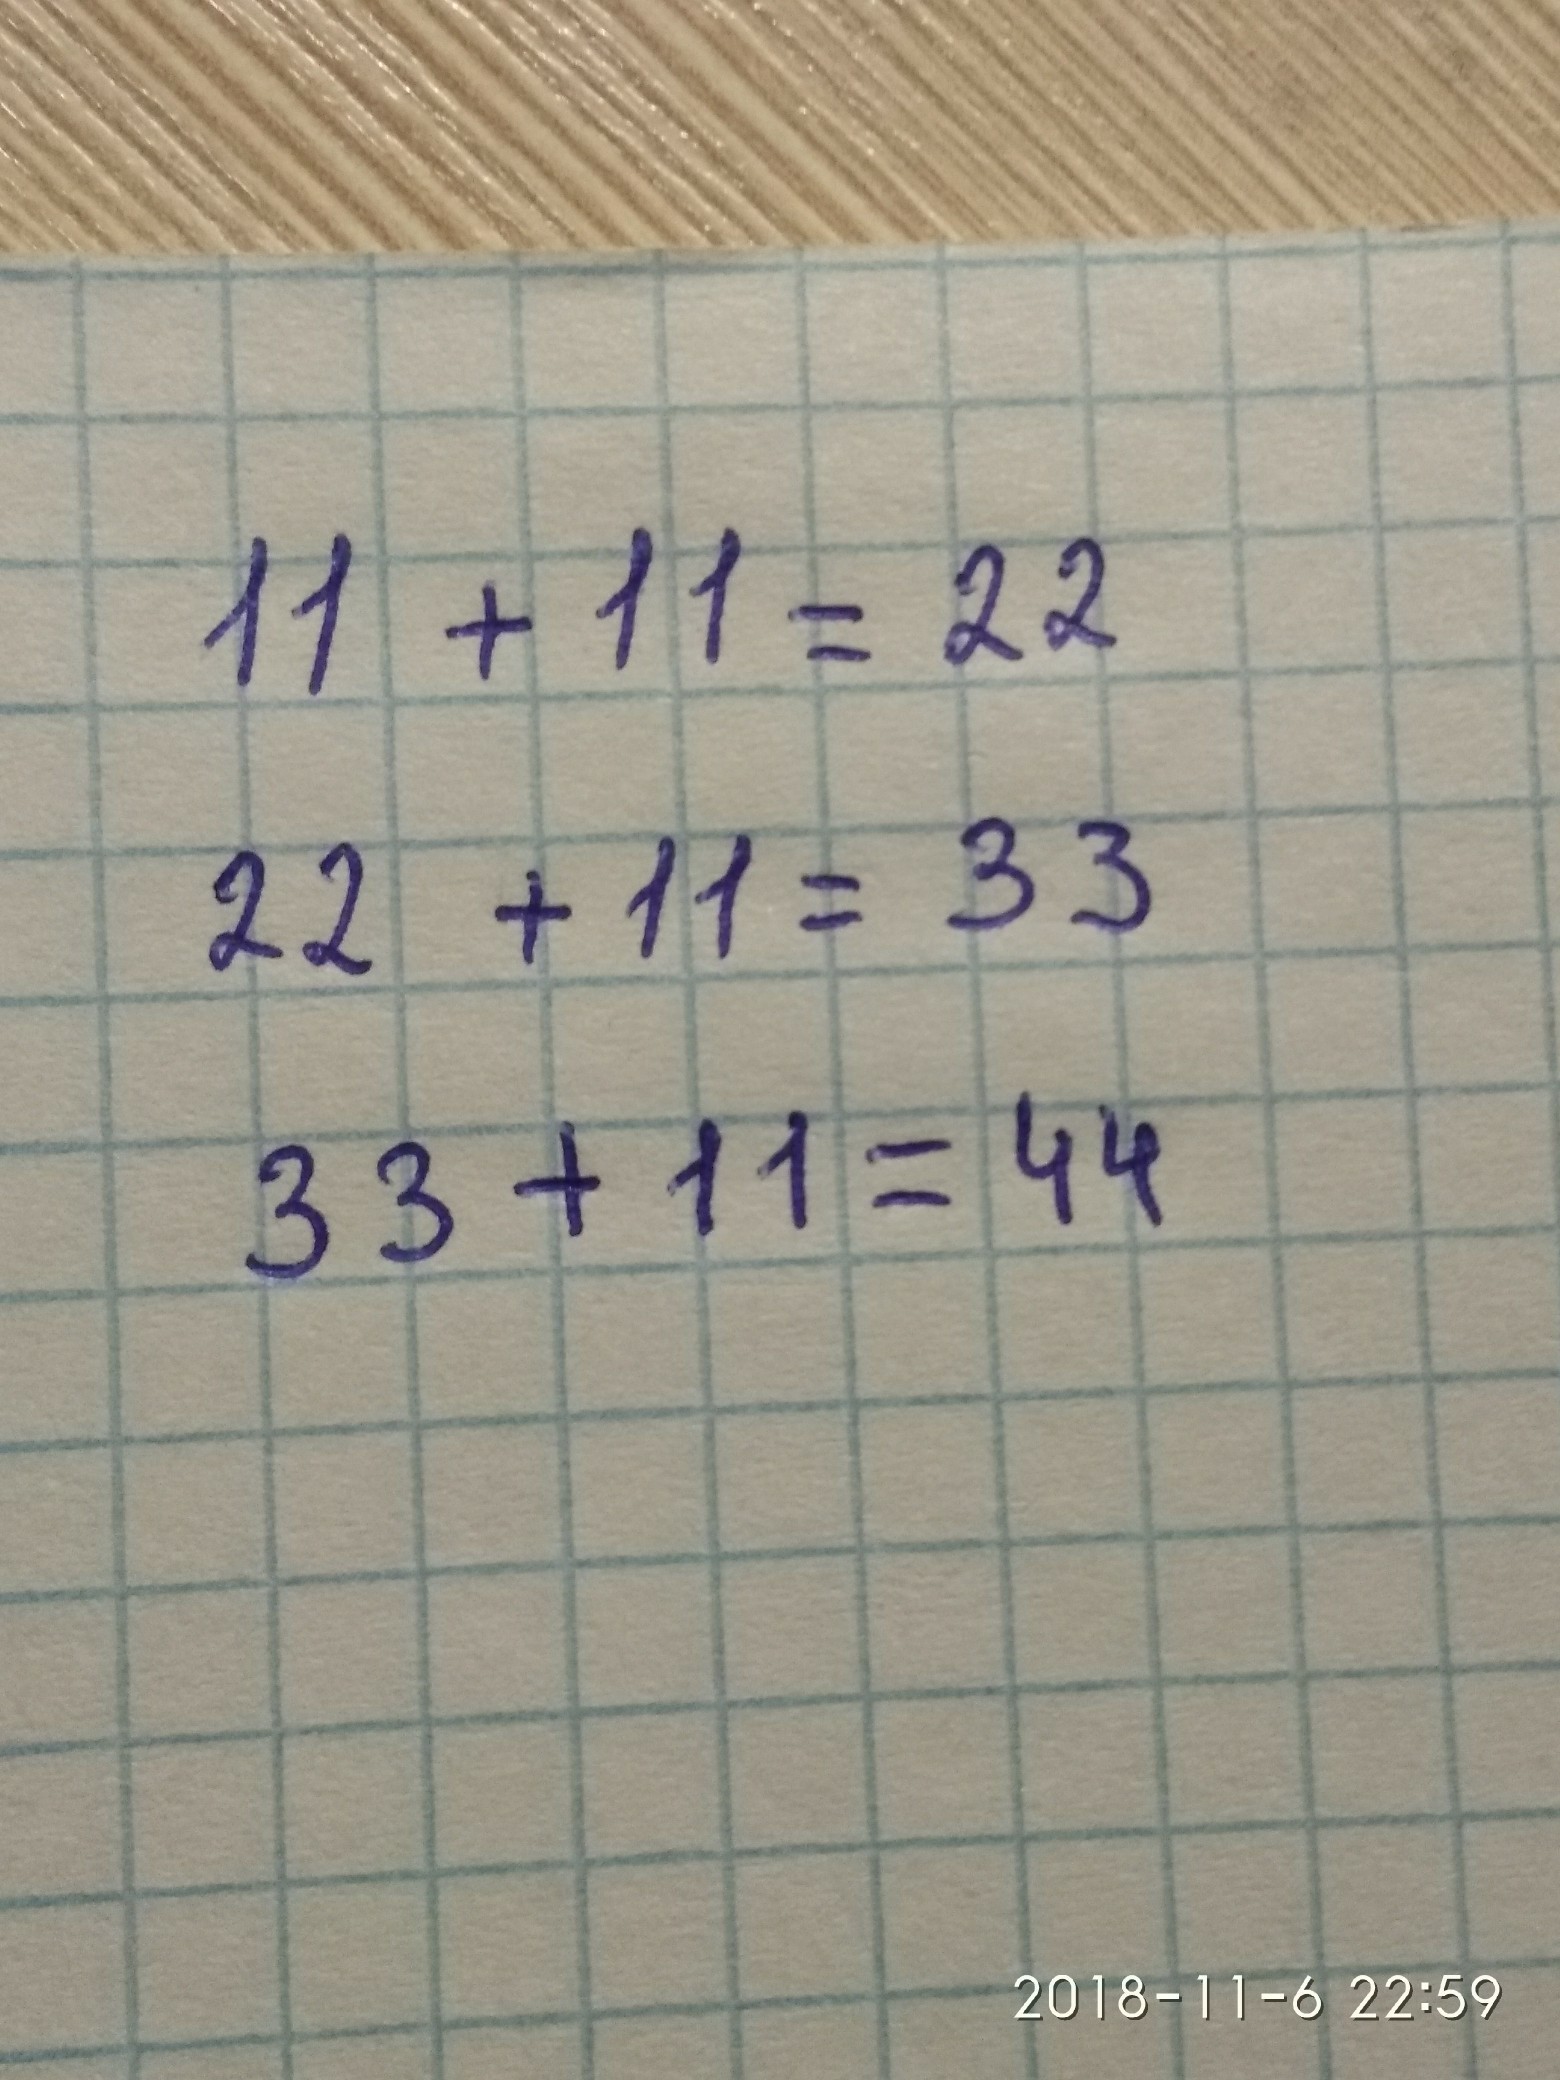 11 + 11 = 22
22 + 11 = 33
33 + 11 = 44
2018-11-6 22:59